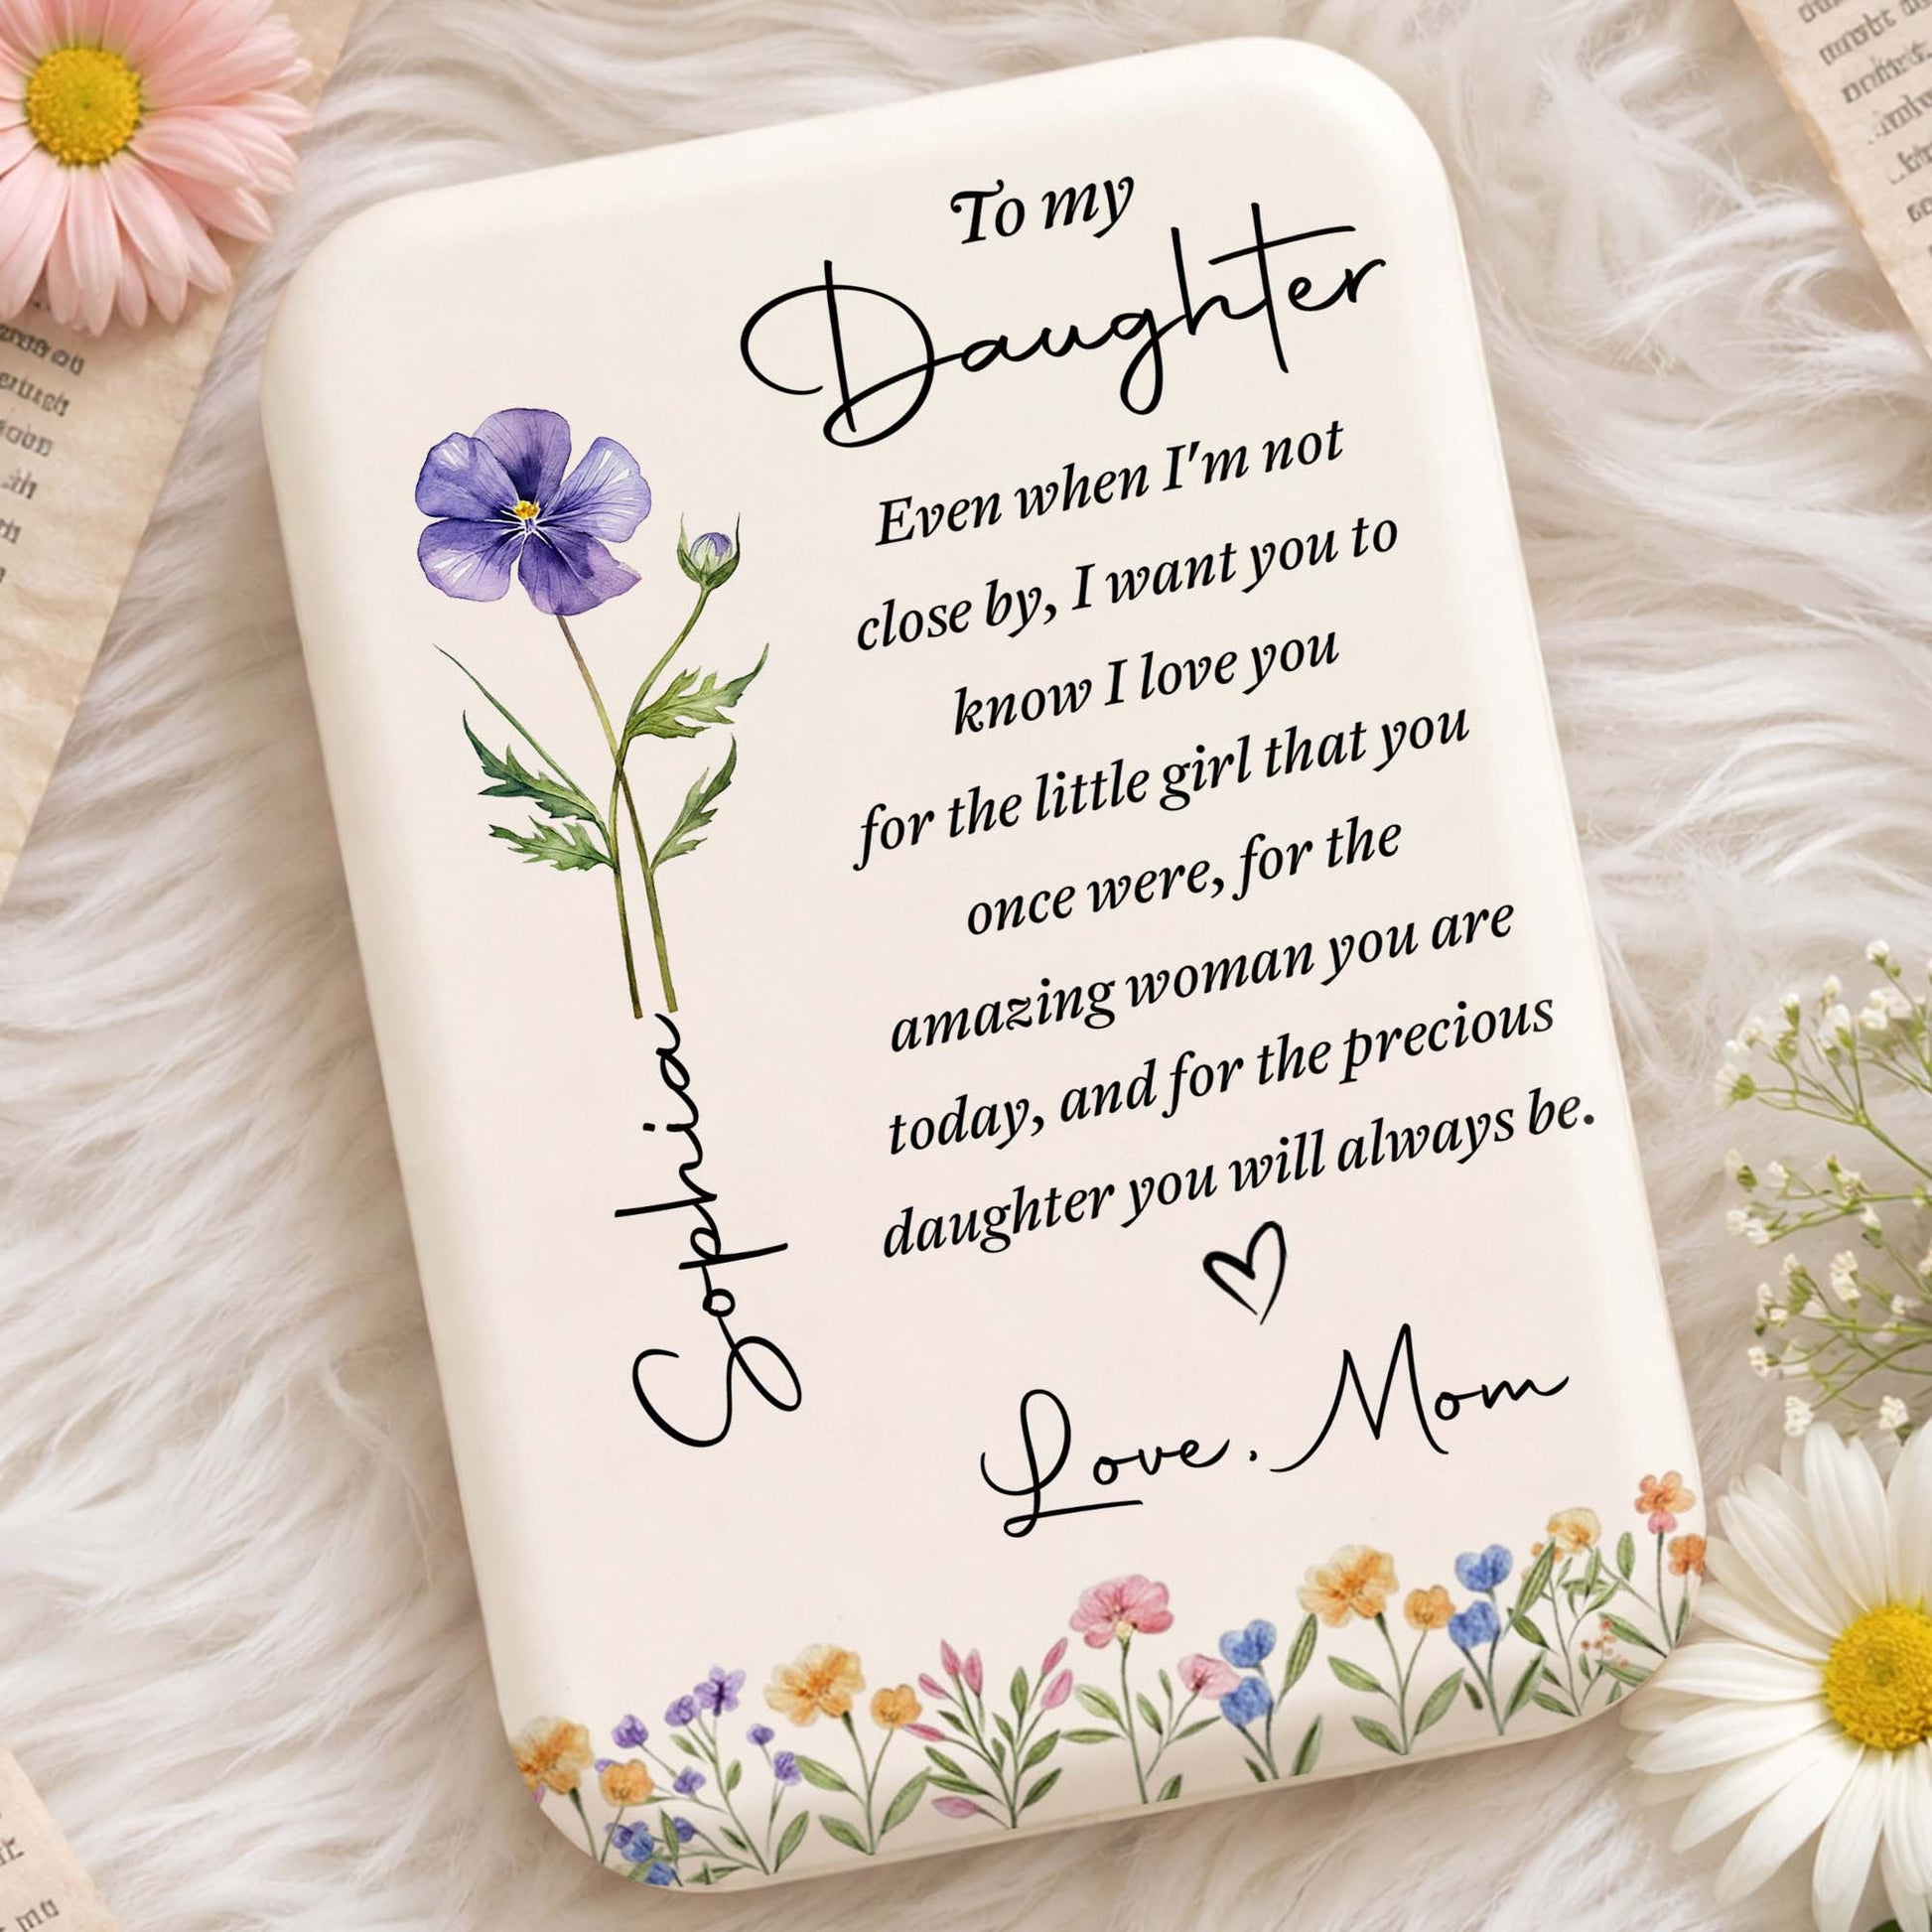 To my
Daughter
Even when I'm not
close by, I want you to
know I love you
for the little girl that you
once were, for the
amazing woman you are
today, and for the precious
daughter you will always be.
Love, Mom
Sophia